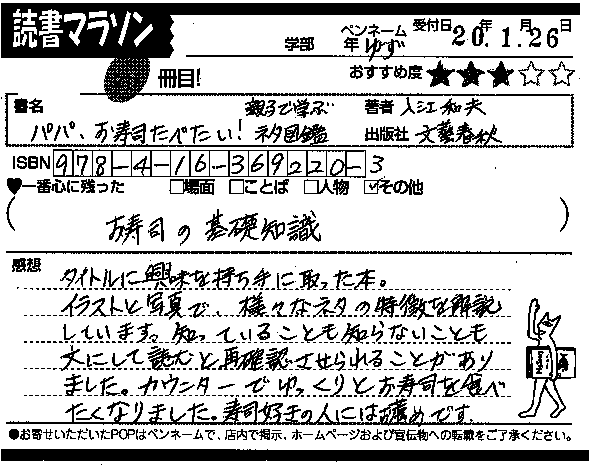 読書マラソン
学部 年 ペンネーム ゆず 受付日 20年 1月 26日
冊目! おすすめ度 ★★★☆☆
書名 親子で学ぶ 著者 入江和夫
パパ、お寿司たべたい! ネタ図鑑 出版社 文藝春秋
ISBN 978-4-16-369220-3
♥一番心に残った □場面 □ことば □人物 ☑その他
( お寿司の基礎知識 )
感想 タイトルに興味を持ち手に取った本。
イラストと写真で、様々なネタの特徴を解説
しています。知っていることも知らないことも
文にして読むと再確認させられることがあり
ました。カウンターでゆっくりとお寿司を食べ
たくなりました。寿司好きの人には薦めです。
●お寄せいただいたPOPはペンネームで、店内で掲示、ホームページおよび宣伝物への転載をご了承ください。